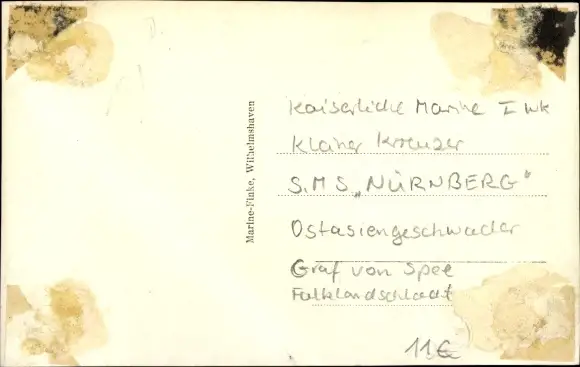 Marine-Finke, Wilhelmshaven
Kaiserliche Marine I WK
Kleiner Kreuzer
S.M.S „NÜRNBERG"
Ostasiengeschwader
Graf von Spee
Falklandschlacht
11€